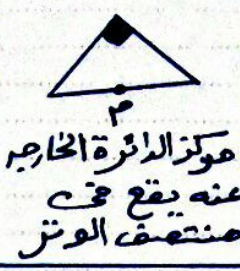 م
مركز الدائرة الخارجه
عنه يقع في
منتصف الوتر